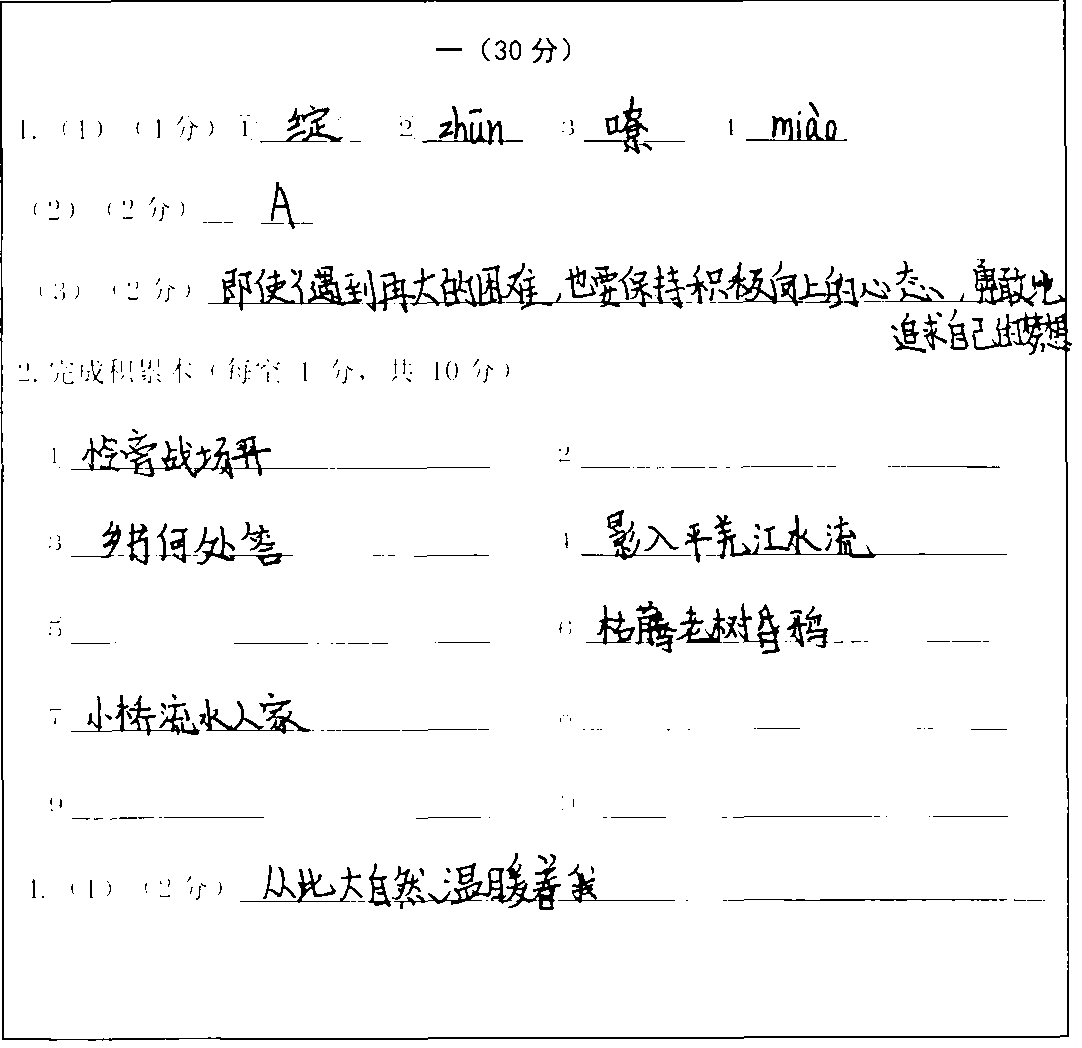 一（30 分）
1.（1）（4分）1 绽 2 zhūn 3 嘹 4 miào
（2）（2分） A
（3）（2分） 即使遇到再大的困难,也要保持积极向上的心态,勇敢地
追求自己的梦想
2. 完成积累本（每空 1 分，共 10 分）
1 怪旁战场开 2
3 乡书何处答 4 影入平羌江水流
5 6 枯藤老树昏鸦
7 小桥流水人家 8
9
4.（1）（2分） 从此大自然温暖着我